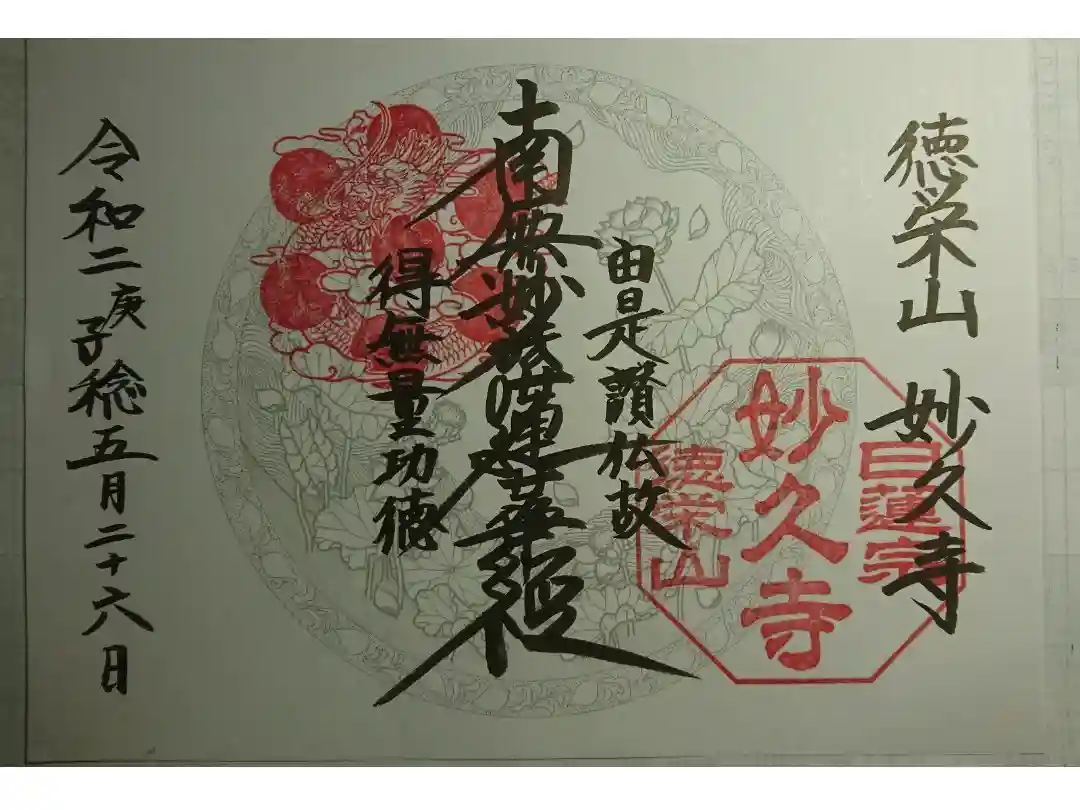 徳栄山 妙久寺
日蓮宗
妙久寺
徳栄山
由是讃仏故
南無妙法蓮華経
得無量功徳
令和二庚子稔五月二十六日